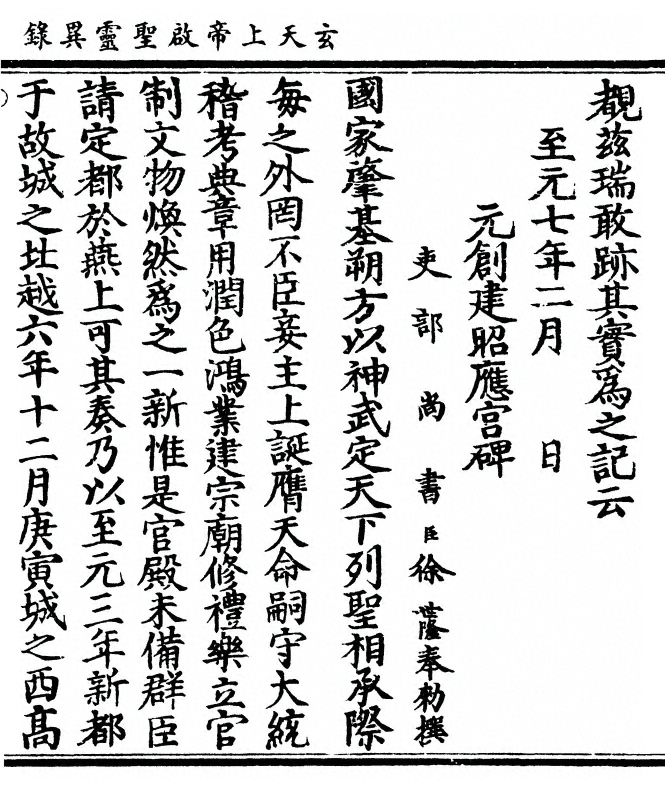 玄天上帝啟聖靈異錄
覩茲瑞敢跡其實爲之記云
至元七年二月　日
元創建昭應宫碑
吏部尚書臣徐世隆奉勑撰
國家肇基朔方以神武定天下列聖相承際
每之外罔不臣妾主上誕膺天命嗣守大統
稽考典章用潤色鴻業建宗廟修禮樂立官
制文物煥然爲之一新惟是官殿未備群臣
請定都於燕上可其奏乃以至元三年新都
于故城之壯越六年十二月庚寅城之西髙